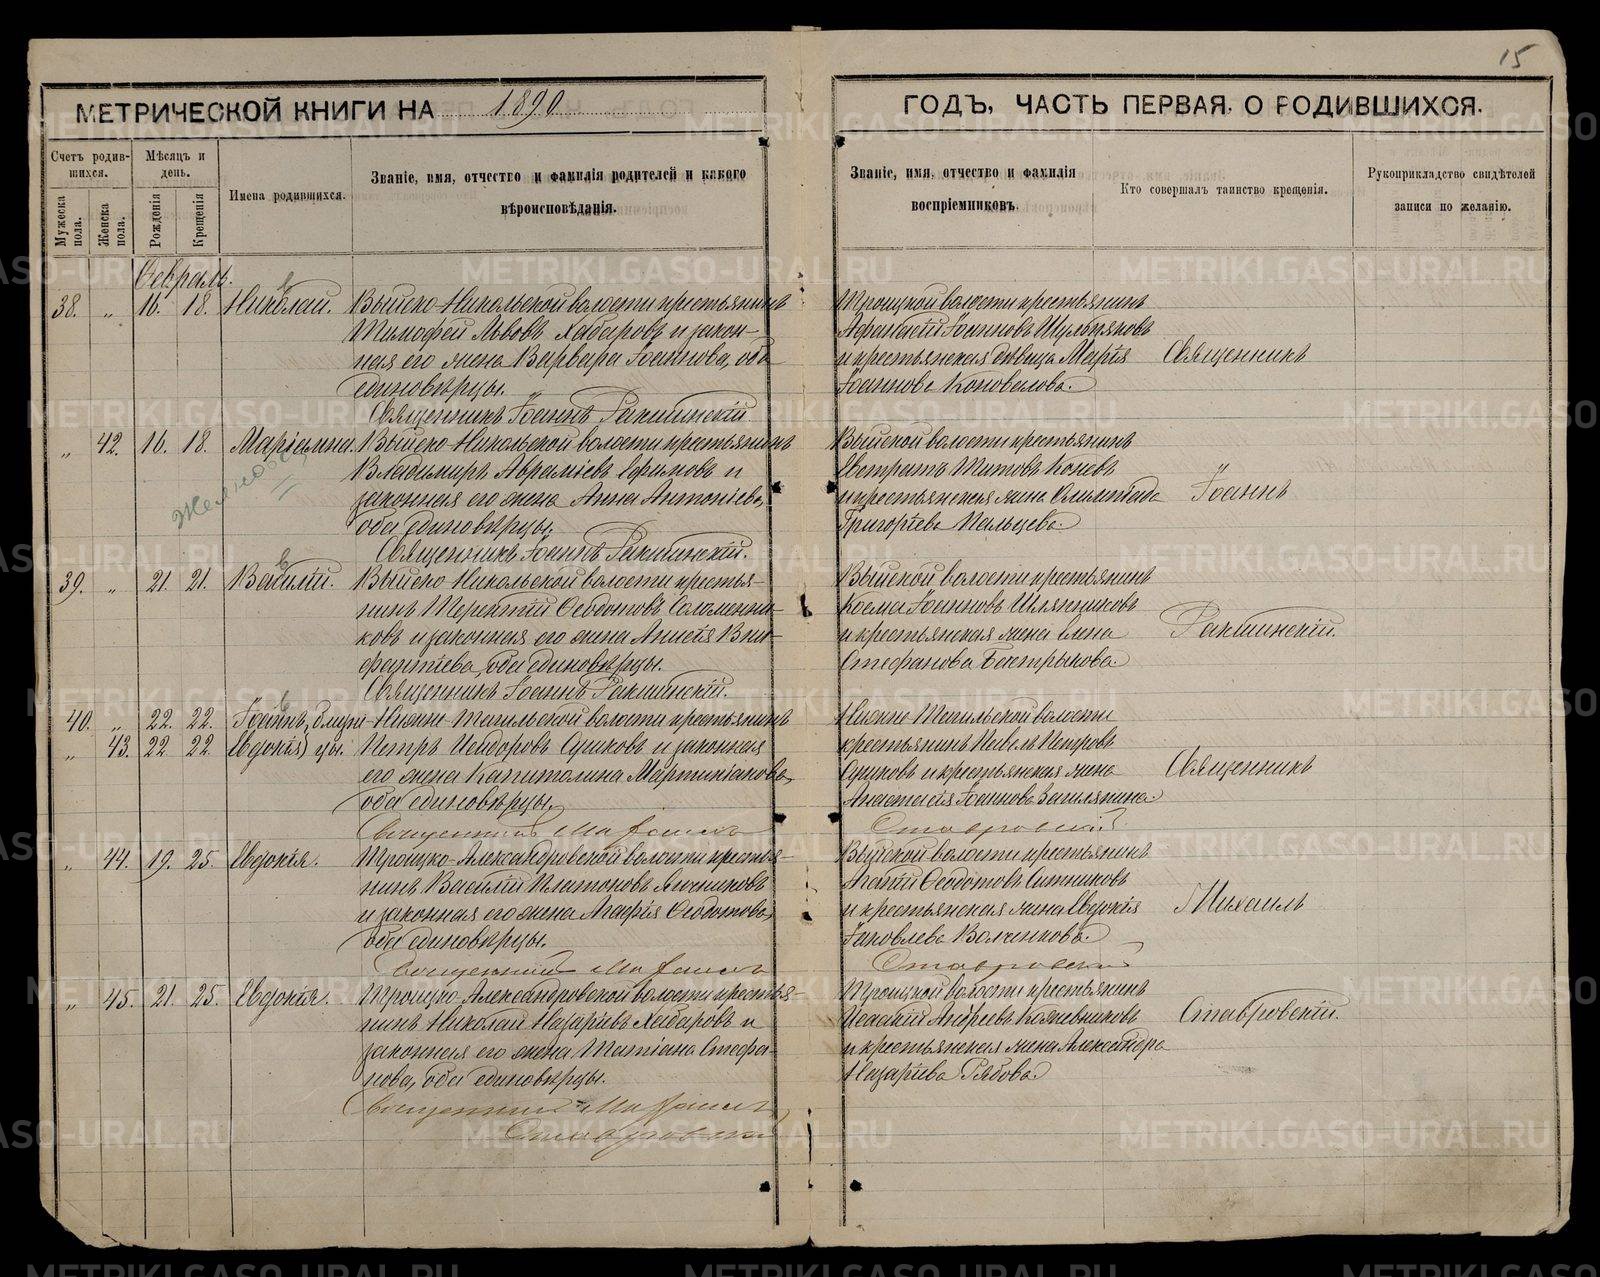 15
МЕТРИЧЕСКОЙ КНИГИ НА 1890 ГОДЪ, ЧАСТЬ ПЕРВАЯ, О РОДИВШИХСЯ.
Счетъ родив-
шихся.
Мужеска пола.
Женска пола.
Мѣсяцъ и
день.
Рожденія
Крещенія
Имена родившихся.
Званіе, имя, отчество и фамилія родителей и какого
вѣроисповѣданія.
Званіе, имя, отчество и фамилія
воспріемниковъ.
Кто совершалъ таинство крещенія.
Рукоприкладство свидѣтелей
записи по желанію.
Февраль.
38. „ 16. 18. Николай. Выйско-Никольской волости крестьянинъ
Тимофей Львовъ Хабаровъ и закон-
ная его жена Варвара Іоаннова, оба
единовѣрцы.
Священникъ Іоаннъ Ракшинскій.
Троицкой волости крестьянинъ
Афанасій Іоанновъ Шульпяковъ
и крестьянская дѣвица Марія
Іоаннова Коновалова.
Священникъ
„ 42. 16. 18. Маріамна. Выйско-Никольской волости крестьянинъ
Владимиръ Авраміевъ Ефимовъ и
законная его жена Анна Антоніева,
оба единовѣрцы.
Священникъ Іоаннъ Ракшинскій.
Выйской волости крестьянинъ
Евстратъ Титовъ Коневъ
и крестьянская жена Олимпіада
Григоріева Пальцева.
Іоаннъ
39. „ 21. 21. Василій. Выйско-Никольской волости крестья-
нинъ Терентій Ѳеодотовъ Соломенни-
ковъ и законная его жена Анисія Вни-
фантіева, оба единовѣрцы.
Священникъ Іоаннъ Ракшинскій.
Выйской волости крестьянинъ
Косма Іоанновъ Шляпниковъ
и крестьянская жена Елена
Стефанова Бастрыкова.
Ракшинскій.
40. „ 22. 22. Іоаннъ, близне- Нижне-Тагильской волости крестьянинъ
„ 43. 22. 22. Евдокія) цы. Петръ Исидоровъ Сушковъ и законная
его жена Капитолина Мартиніанова,
оба единовѣрцы.
Священникъ Михаилъ Ставровскій
Нижне-Тагильской волости
крестьянинъ Павелъ Петровъ
Сушковъ и крестьянская жена
Анастасія Іоаннова
Священникъ
„ 44. 19. 25. Евдокія. Троицко-Александровской волости крестья-
нинъ Василій Платоновъ
и законная его жена Агафія Ѳеодотова,
оба единовѣрцы.
Священникъ Михаилъ Ставровскій
Выйской волости крестьянинъ
Агапій Ѳеодотовъ Ситниковъ
и крестьянская жена Евдокія
Іаковлева Волченкова.
Михаилъ
„ 45. 21. 25. Евдокія. Троицко-Александровской волости крестья-
нинъ Николай Назаріевъ Хабаровъ и
законная его жена Татіана Стефа-
нова, оба единовѣрцы.
Священникъ Михаилъ
Ставровскій
Троицкой волости крестьянинъ
Исаакій Андреевъ Кожевниковъ
и крестьянская жена Александра
Назаріева Рябова.
Ставровскій.
METRIKI.GASO-URAL.RU